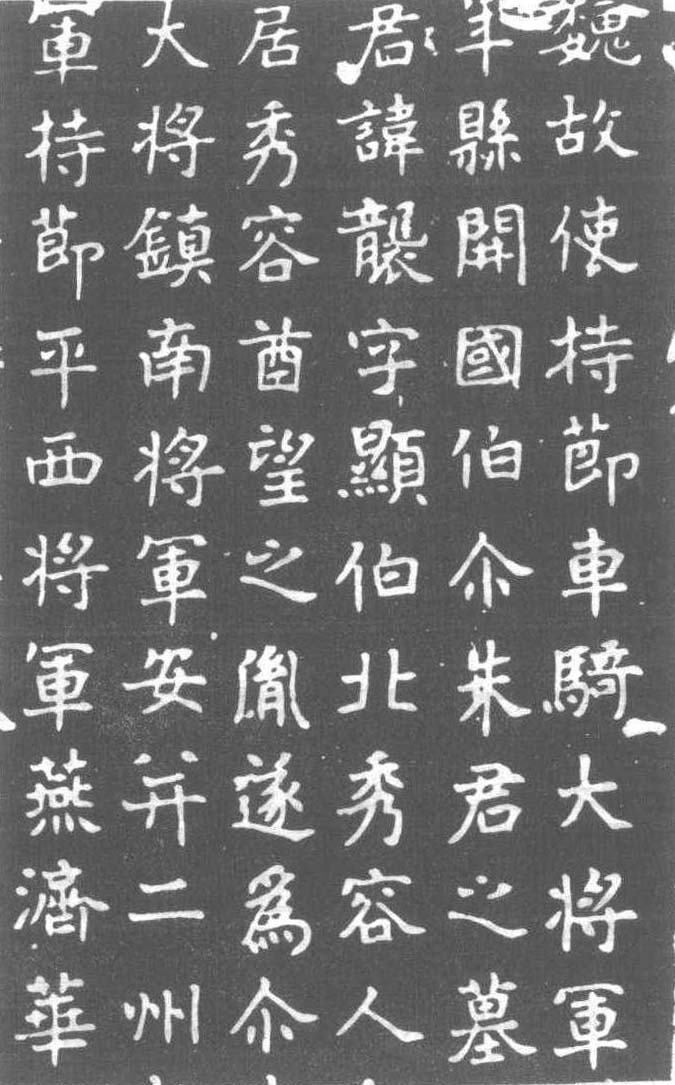 魏故使持節車騎大將軍
年縣開國伯尒朱君之墓
君諱襲字顯伯北秀容人
居秀容酋望之胤遂為尒
大將鎮南將軍安并二州
軍持節平西將軍燕濟華